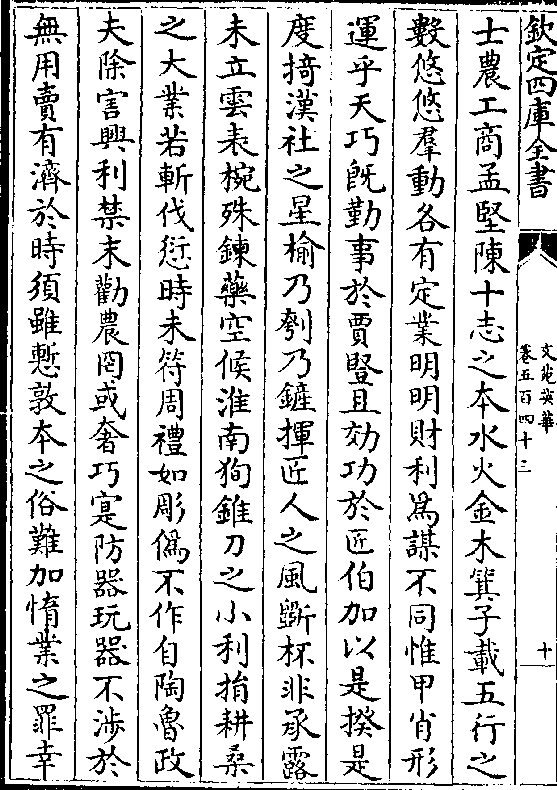 欽定四庫全書
文苑英華
卷五百四十三
十
士農工商孟堅陳十志之本水火金木箕子載五行之
數悠悠羣動各有定業明明財利爲謀不同惟甲肖形
運乎天巧旣勤事於賈豎且効功於匠伯加以是揆是
度掎漢社之星榆乃刳乃鏟揮匠人之風斲杯非承露
未立雲表椀殊鍊藥空候淮南狥錐刀之小利捐耕桑
之大業若斬伐愆時未符周禮如彫僞不作自陶魯政
夫除害興利禁末勸農罔或奢巧寔防器玩器不涉於
無用賣有濟於時須雖慙敦本之俗難加惰業之罪幸